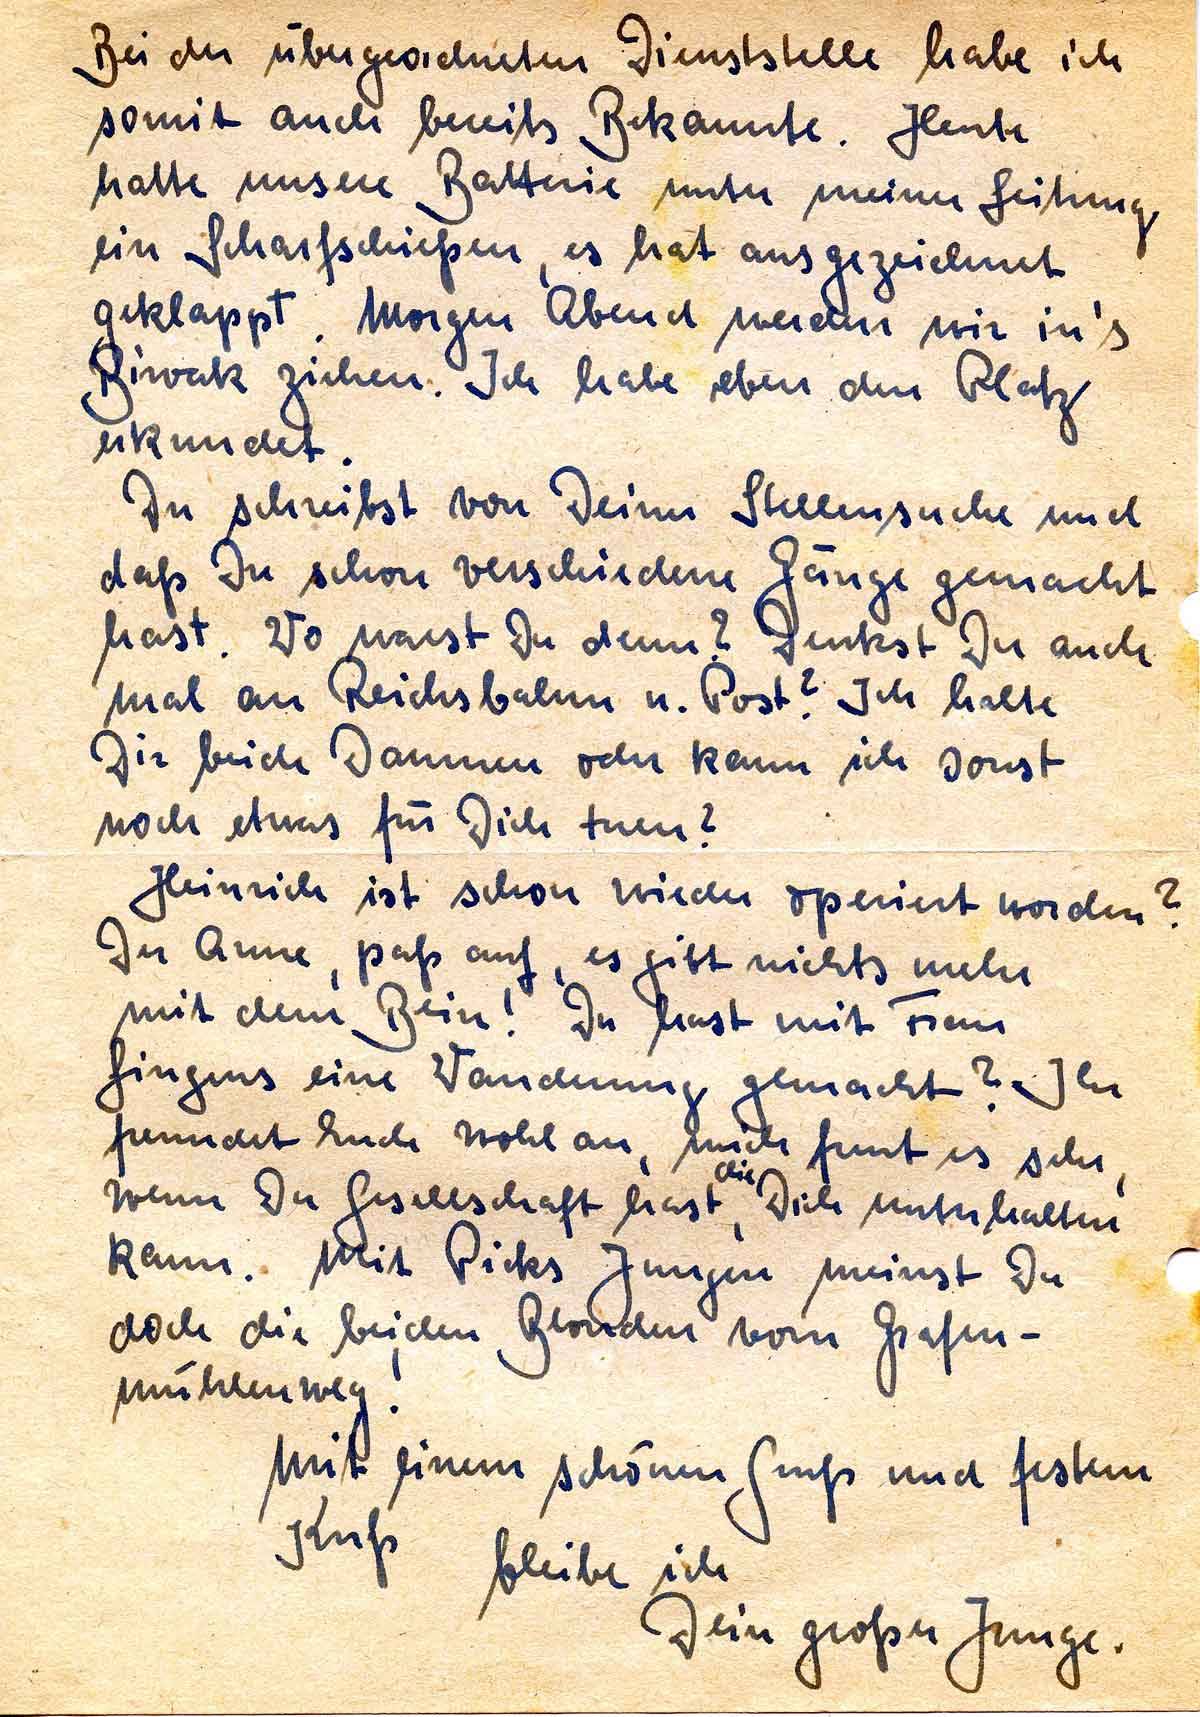 Bei der übergeordneten Dienststelle habe ich
somit auch bereits Bekannte. Heute
hatte unsere Batterie unter meiner Leitung
ein Scharfschießen, es hat ausgezeichnet
geklappt. Morgen Abend werden wir in's
Biwak ziehen. Ich habe eben den Platz
erkundet.
Du schreibst von Deiner Stellensuche und
daß Du schon verschiedene Gänge gemacht
hast. Wo warst Du denn? Denkst Du auch
mal an Reichsbahn u. Post? Ich halte
Dir beide Daumen oder kann ich sonst
noch etwas für Dich tuen?
Heinrich ist schon wieder operiert worden?
Der Arme, paß auf, es gibt nichts mehr
mit dem Bein! Du hast mit Frau
eine Wanderung gemacht? Ihr
freundet Euch wohl an, mich freut es sehr,
wenn Du Gesellschaft hast, die Dich unterhalten
kann. Mit Picks Jungen meinst Du
doch die beiden Blonden vom Grafen-
mühlenweg!
Mit einem schönen Gruß und festem
Kuß
bleibe ich
Dein großer Junge.